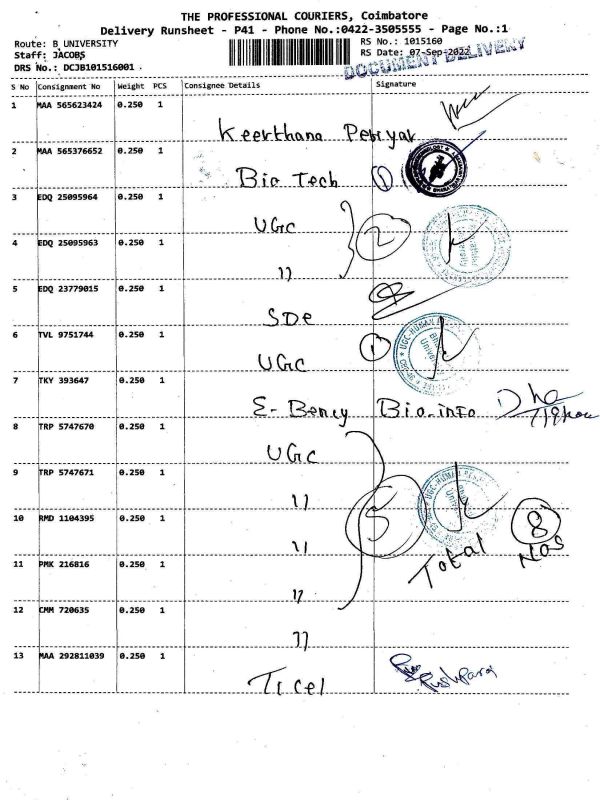 THE PROFESSIONAL COURIERS, Coimbatore
Delivery Runsheet - P41 - Phone No.:0422-3505555 - Page No.:1
Route: B_UNIVERSITY
RS No.: 1015160
Staff: JACOBS
RS Date: 07-Sep-2022
DRS No.: DCJB101516001
DOCUMENT DELIVERY
S No Consignment No Weight PCS Consignee Details Signature
1 MAA 565623424 0.250 1
Keerthana Periyar
2 MAA 565376652 0.250 1
Bio Tech 1
3 EDQ 25095964 0.250 1
UGC 2
4 EDQ 25095963 0.250 1
"
5 EDQ 23779015 0.250 1
SDE
6 TVL 9751744 0.250 1
UGC 1
7 TKY 393647 0.250 1
E- Bency Bio-info
8 TRP 5747670 0.250 1
UGC
9 TRP 5747671 0.250 1
" 5
10 RMD 1104395 0.250 1
" Total 8 Nos
11 PMK 216816 0.250 1
"
12 CMM 720635 0.250 1
"
13 MAA 292811039 0.250 1
Ticel